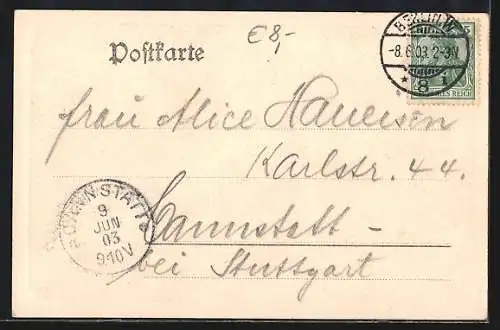 €8,-
Postkarte
BERLIN W.
-8.6.03. 2-3N.
* 8 1
5
DEUTSCHES REICH
Frau Alice Haueisen
Karlstr. 44.
Cannstatt -
bei Stuttgart
CANNSTATT
9
JUN
03
9-10V